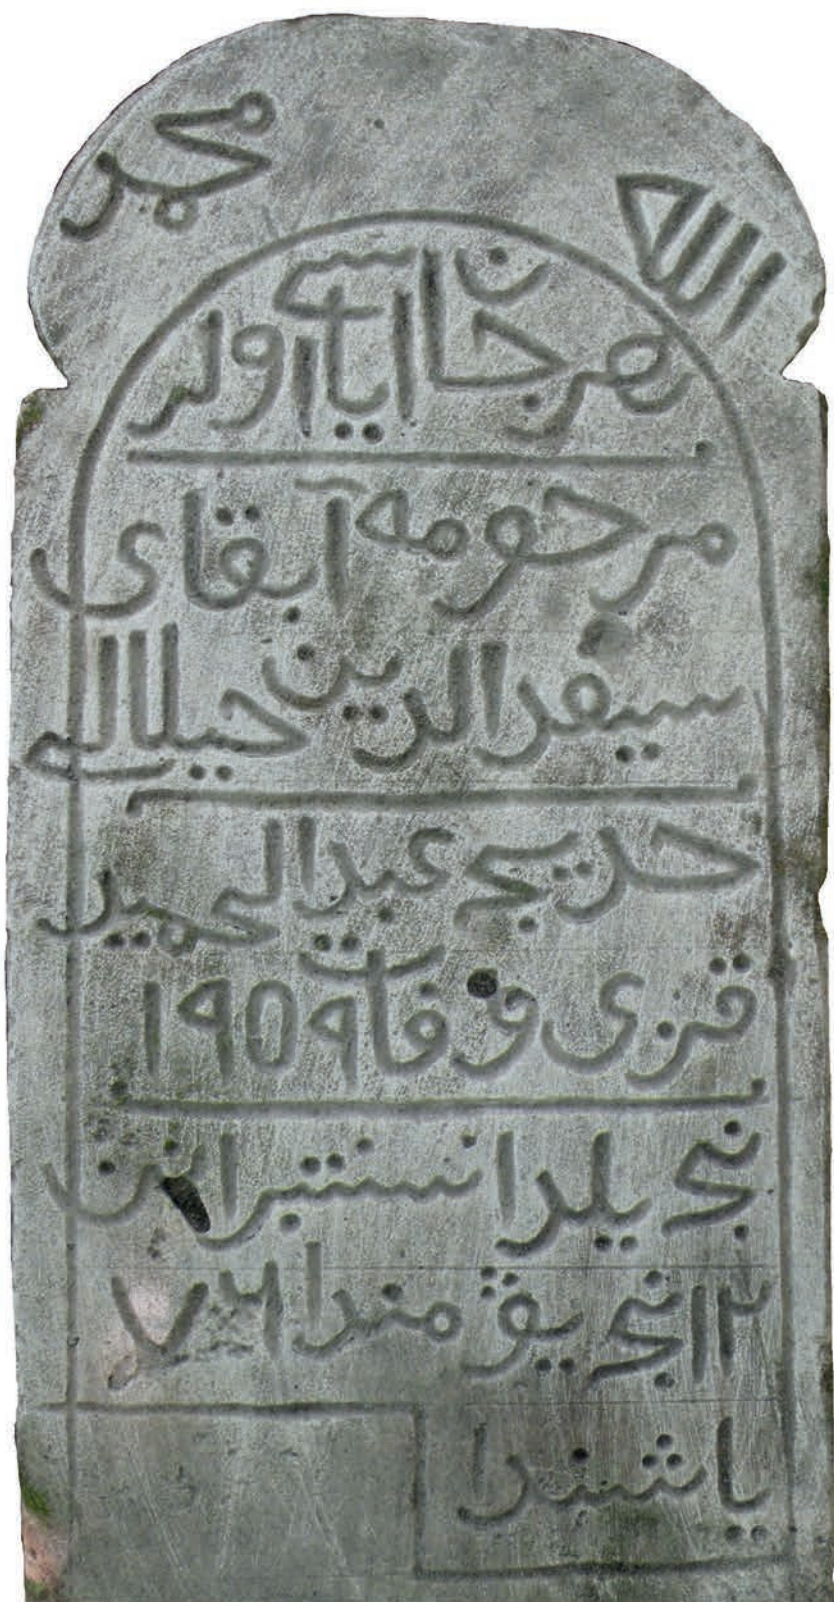 الله محمد
هر جان اياسى اولر
مرحومه آبقاى
سيفرالدين جيلالى
خديج عبدالحميد
قزى وفات ١٩٥٩
نجى يلدا سنتبرا نن
١٢ نجى يۇ مندا ٧٦
ياشندا